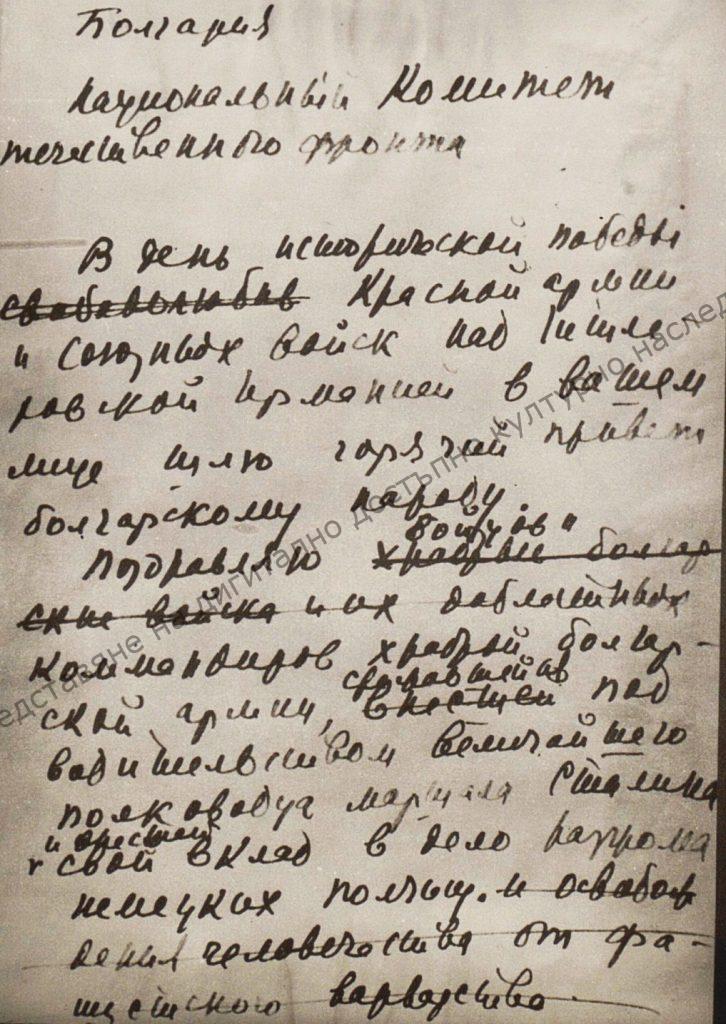 Болгария
Национальный Комитет
течественного фронта
В день исторической победы
свободолюбив Красной армии
и союзных войск над Гитле-
ровской Германией в вашем
лице шлю горячий привет
болгарскому народу.
бойцов и
Поздравляю храбрые болгар
ские войска и их доблестных
коммандиров храброй болгар-
ской армии,
сражавшейся
внесшей под
водительством величайшего
полководца маршала Сталина
и внесшей
свой вклад в дело разгрома
немецких полчищ. и освобож
дения человечества от фа-
шистского варварства
редставяне на дигитално достъпно културно наслед